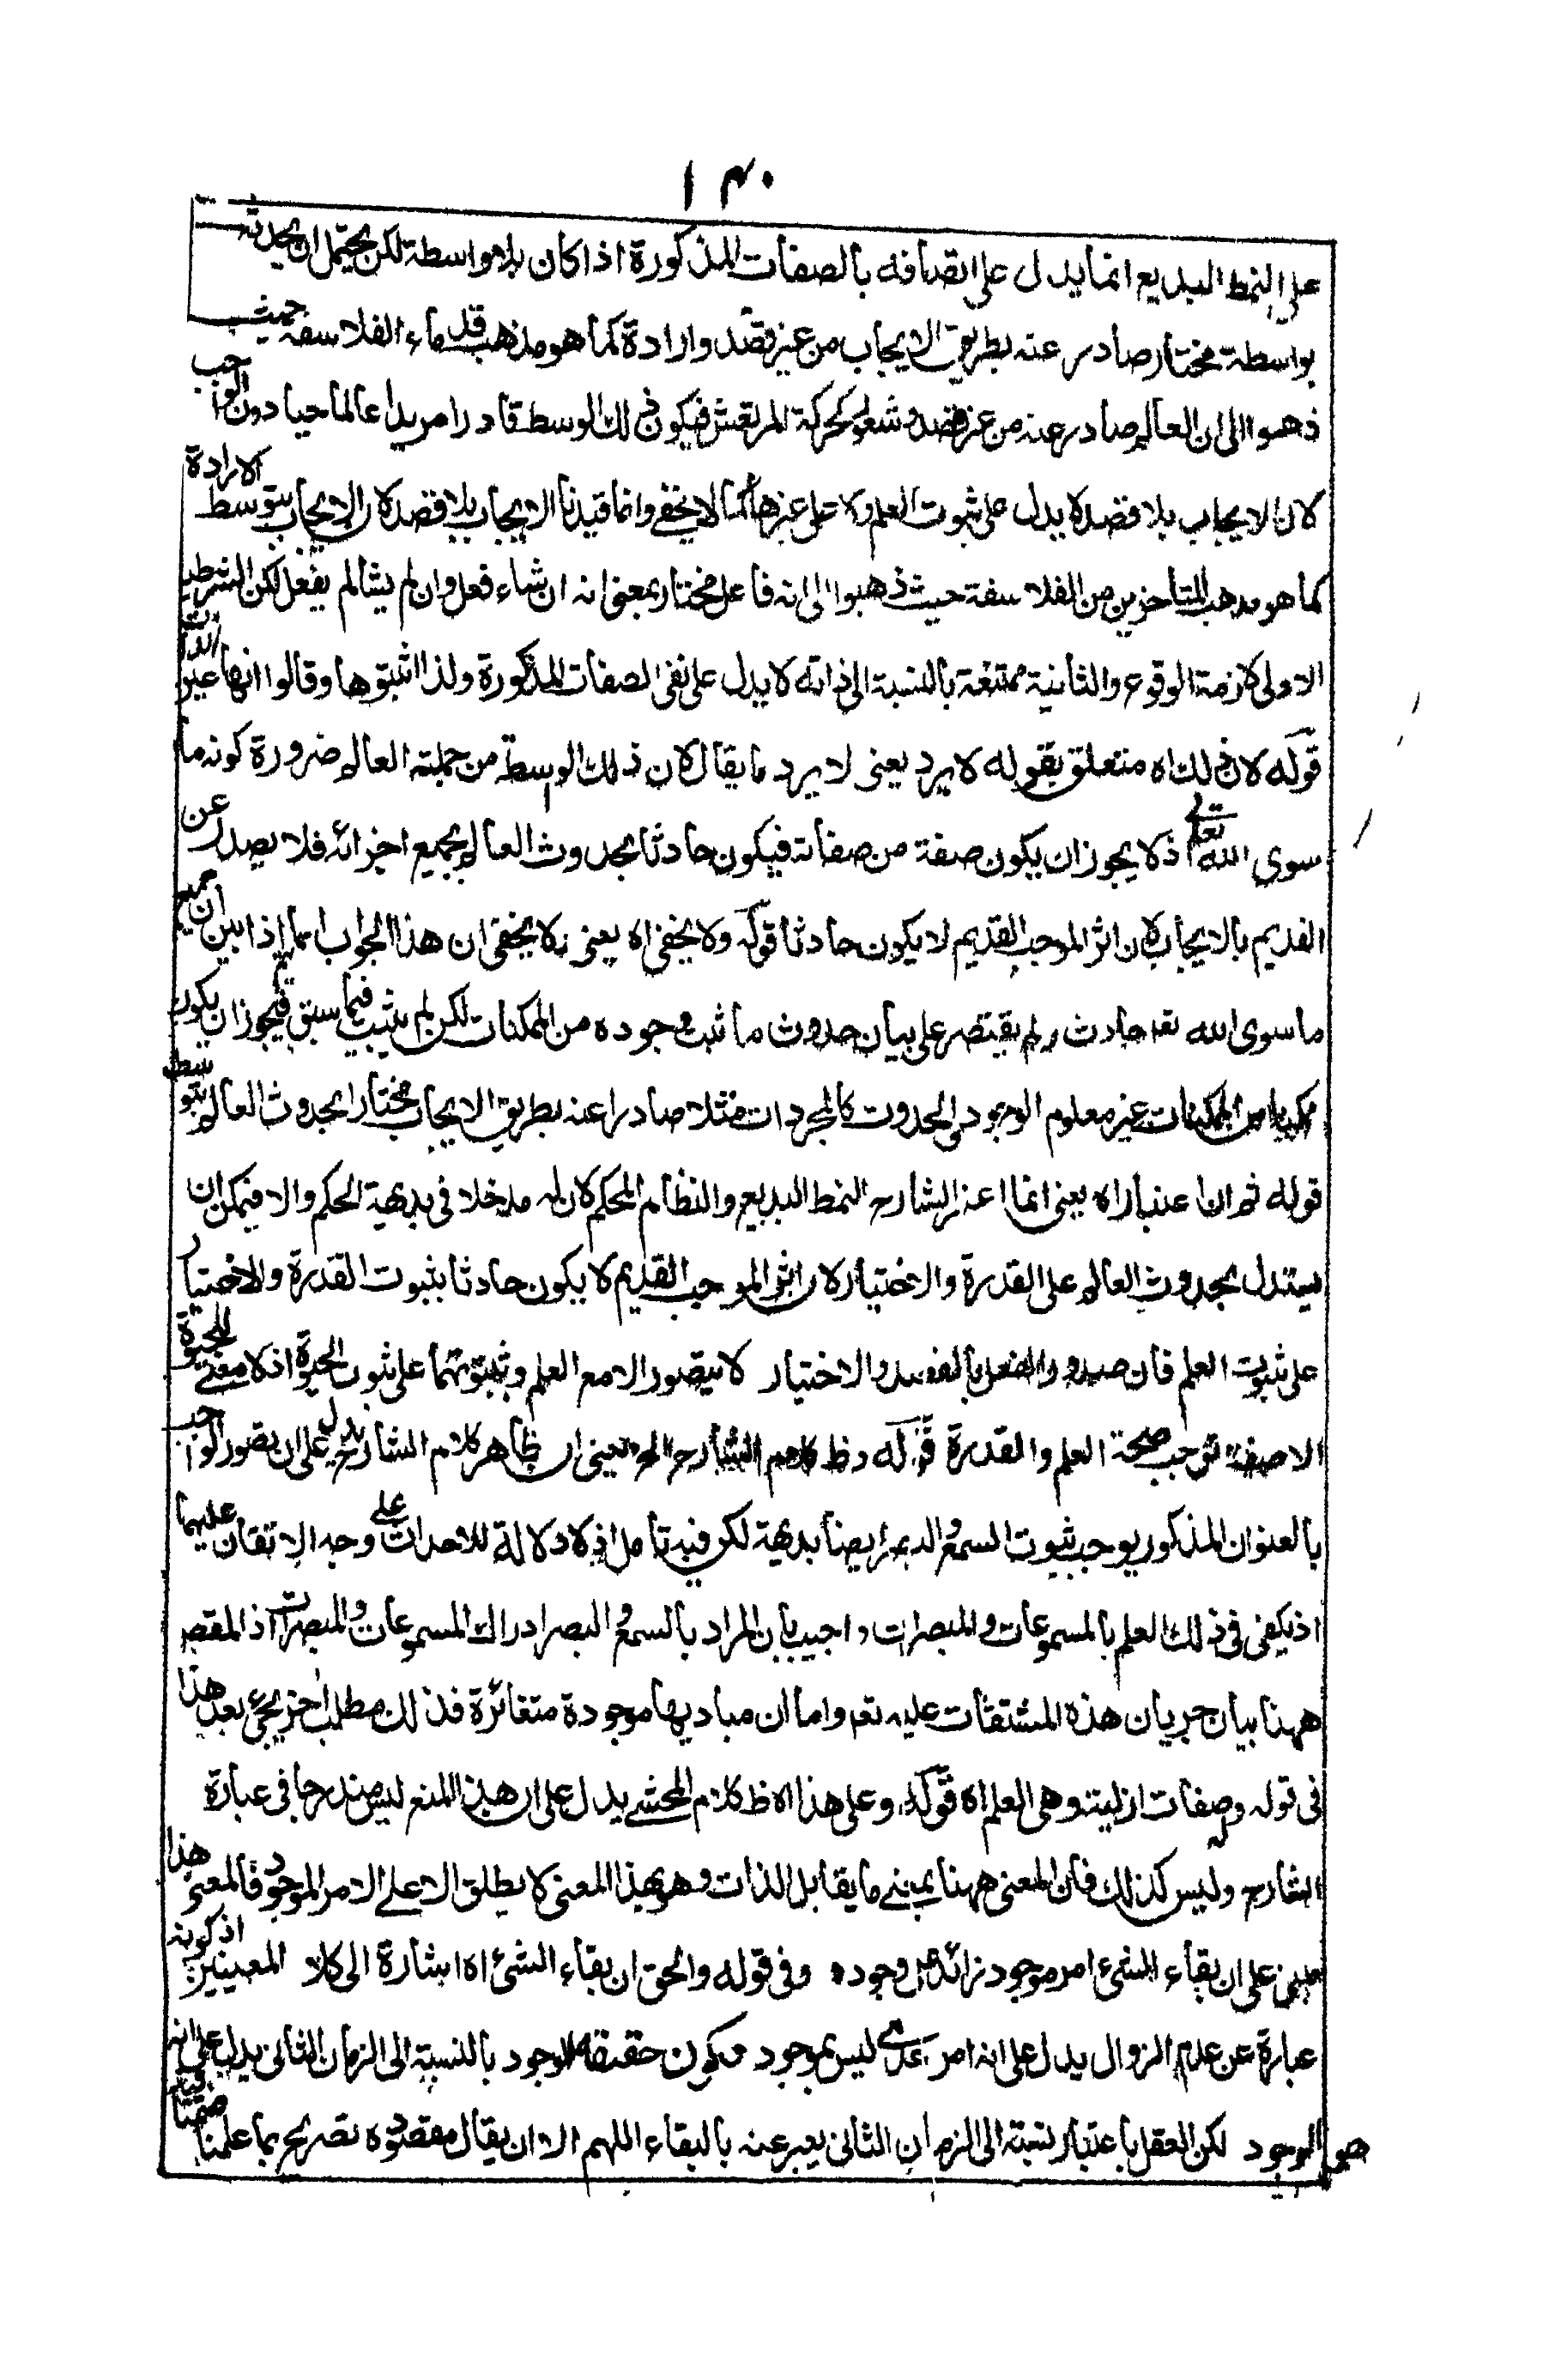 ١٣٠
على النمط البديع انما يدل على اتصافه بالصفات المذكورة اذا كان بلا واسطة لكن يحتمل ان يحدثه
بواسطة مختار صادر عنه بطريق الايجاب من غير قصد وارادة كما هو مذهب قدماء الفلاسفة حيث
ذهبوا الى ان العالم صادر عنه من غير قصد وشعور كحركة المرتعش فيكون ذلك الوسط قادرا مريدا عالما حيا دون الواجب
لان الايجاب بلا قصد لا يدل على ثبوت العلم ولا على غيرها كما لا يخفى وانما قيدنا الايجاب بلا قصد لان الايجاب بتوسط الارادة
كما هو مذهب المتاخرين من الفلاسفة حيث ذهبوا الى انه فاعل مختار بمعنى انه ان شاء فعل وان لم يشا لم يفعل لكن الشرطية
الاولى لازمة الوقوع والثانية ممتنعة بالنسبة الى ذاته لا يدل على نفى الصفات المذكورة ولذا اثبتوها وقالوا انها عين الذات
قوله لان ذلك اه متعلق بقوله لا يرد يعنى لا يرد ما يقال لان ذلك الوسط من جملته العالم ضرورة كونه ما
سوى الله تعالى اذ لا يجوز ان يكون صفة من صفاته فيكون حادثا بحدوث العالم بجميع اجزائه فلا يصدر عن
القديم بالايجاب لان اثر الموجب القديم لا يكون حادثا قوله ولا يخفى اه يعنى لا يخفى ان هذا الجواب انما يتم اذا بين ان جميع
ما سوى الله تعه حادث ولم يقتصر على بيان حدوث ما ثبت وجوده من الممكنات لكن لم يثبت فيما سبق فيجوز ان يكون
ممكنا من الممكنات غير معلوم الوجود والحدوث كالمجردات مثلا صادرا عنه بطريق الايجاب مختارا بحدوث العالم بتوسطه
قوله ثم ان اعتبار اه يعنى انما اعتبر الشارح النمط البديع والنظام المحكم لان له مدخلا فى بديهية الحكم والا فيمكن ان
يستدل بحدوث العالم على القدرة والاختيار لان اثر الموجب القديم لا يكون حادثا بثبوت القدرة والاختيار
على ثبوت العلم فان صدور الفعل بالقصد والاختيار لا يتصور الا مع العلم وثبوتهما على ثبوت الحيوة اذ لا معنى للحيوة
الا صفة توجب صحة العلم والقدرة قوله وظ كلام الشارح اه يعنى ان ظاهر كلام الشارح يدل على ان تصور الواجب
بالعنوان المذكور يوجب ثبوت السمع والبصر ايضا بديهية لكن فيه تامل اذ لا دلالة للاحداث على وجه الاتقان عليهما
اذ يكفى فى ذلك العلم بالمسموعات والمبصرات واجيب بان المراد بالسمع والبصر ادراك المسموعات والمبصرات اذ المقص
ههنا بيان جريان هذه المشتقات عليه تعه واما ان مباديها موجودة متغائرة فذلك مطلب اخر يجئ بعد هذا
فى قوله وله صفات ازلية وهى العلم اه قوله وعلى هذا اه ظ كلام المحشے يدل على ان هذا المنع ليس مندرجا فى عبارة
الشارح وليس كذلك فان المعنى ههنا بمعنے ما يقابل الذات وهو بهذا المعنى لا يطلق الا على الامر الموجود فالمعنى هذا
مبنى على ان بقاء الشئ امر موجود زائد على وجوده وفى قوله والحق ان بقاء الشئ اه اشارة الى كلا المعنيين اذ كونه
عبارة عن عدم الزوال يدل على انه امر عدمى ليس بموجود وكون حقيقة الوجود بالنسبة الى الزمان الثانى يدل على انه
هو الوجود لكن العقل باعتبار نسبته الى الزمان الثانى يعبر عنه بالبقاء اللهم الا ان يقال مقصوده تصريح بما علمنا ضمنا